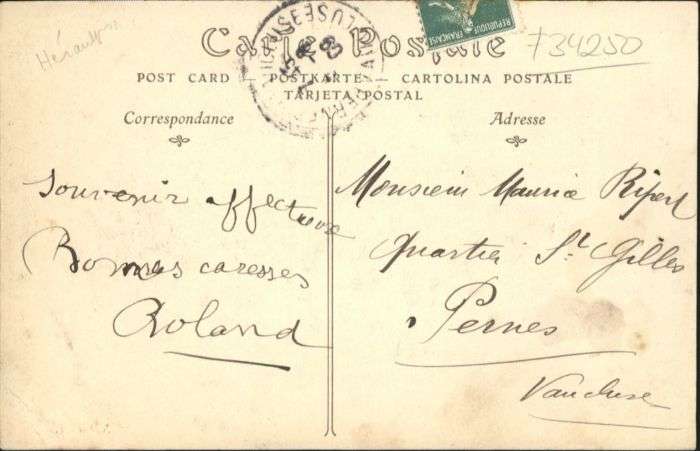 Hérault
Carte Postale
734250
POST CARD — POSTKARTE — CARTOLINA POSTALE
TARJETA POSTAL
Correspondance
Adresse
Souvenir affectueux
Bonnes caresses
Roland
Monsieur Maurice Ripert
Quartier St Gilles
Pernes
Vaucluse
VAUCLUSE
REPUBLIQUE FRANÇAISE